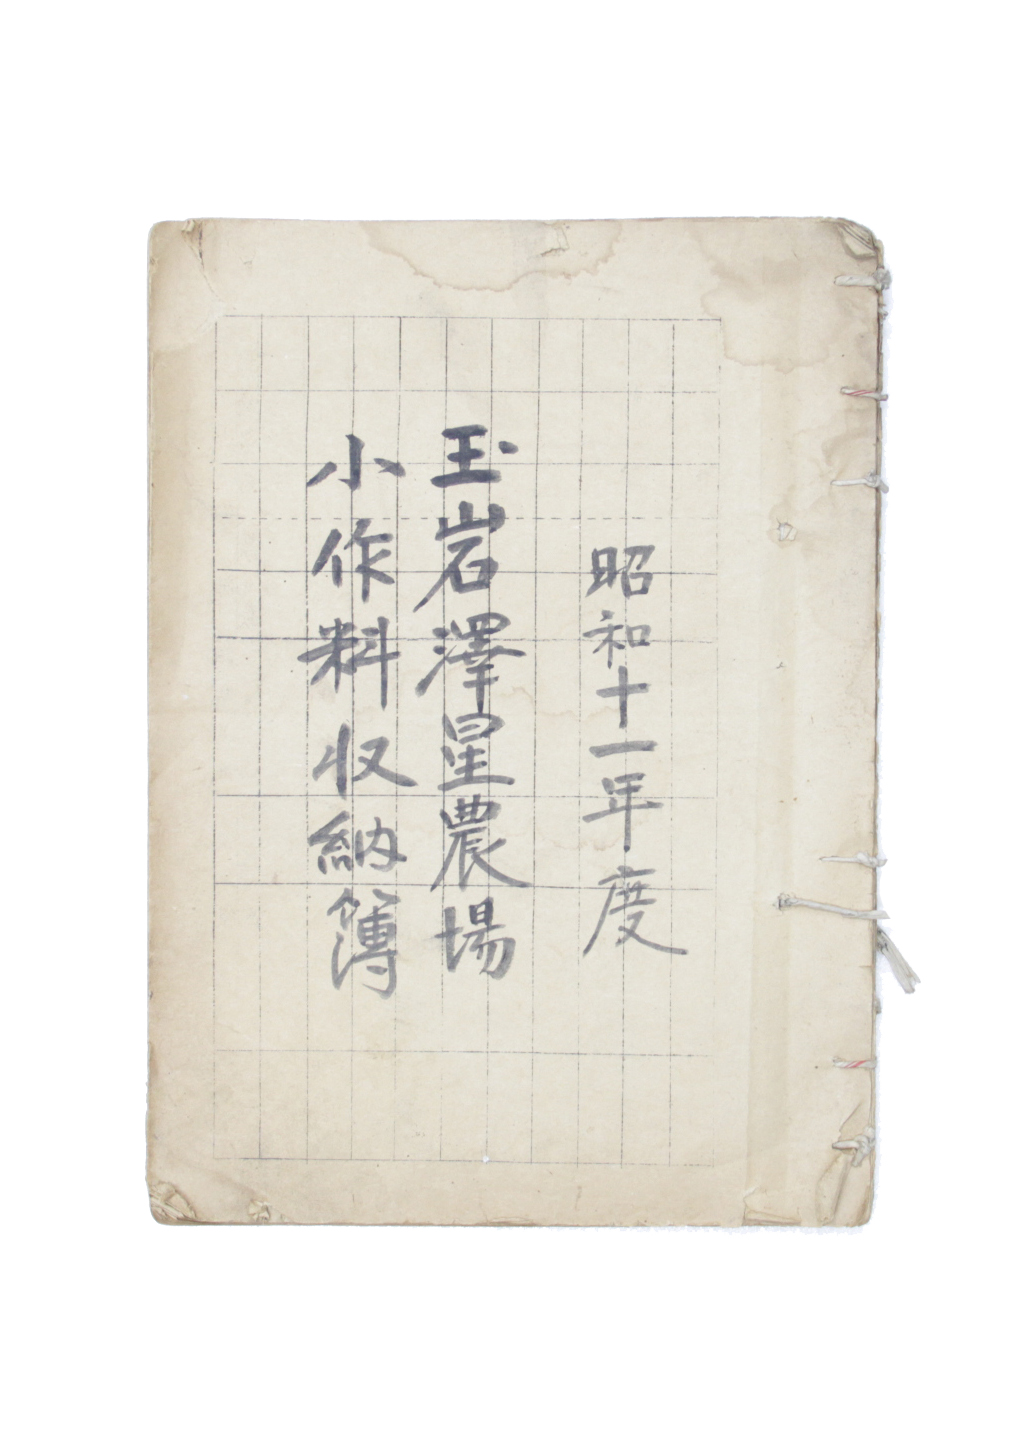 昭和十一年度
玉岩澤星農場
小作料収納簿